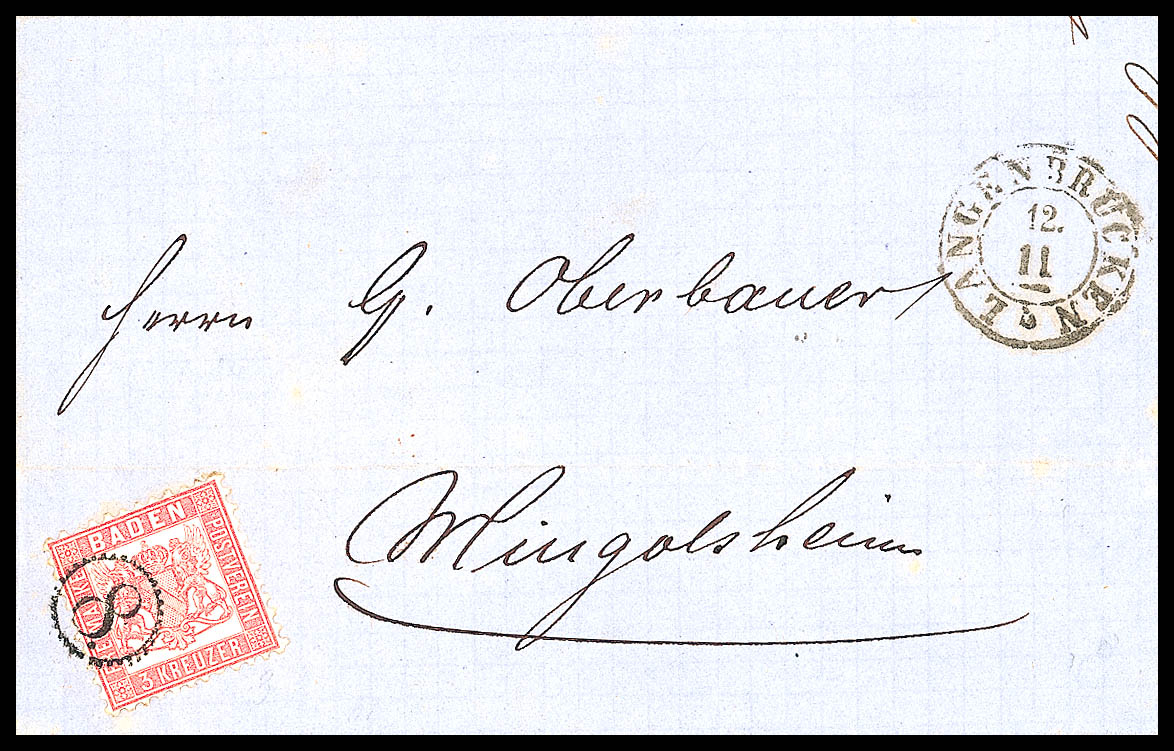 LANGENBRÜCKEN
12.
11
Herrn G. Oberbauer
Mingolsheim
BADEN
POSTVEREIN
FREIMARKE
3 KREUZER
8.